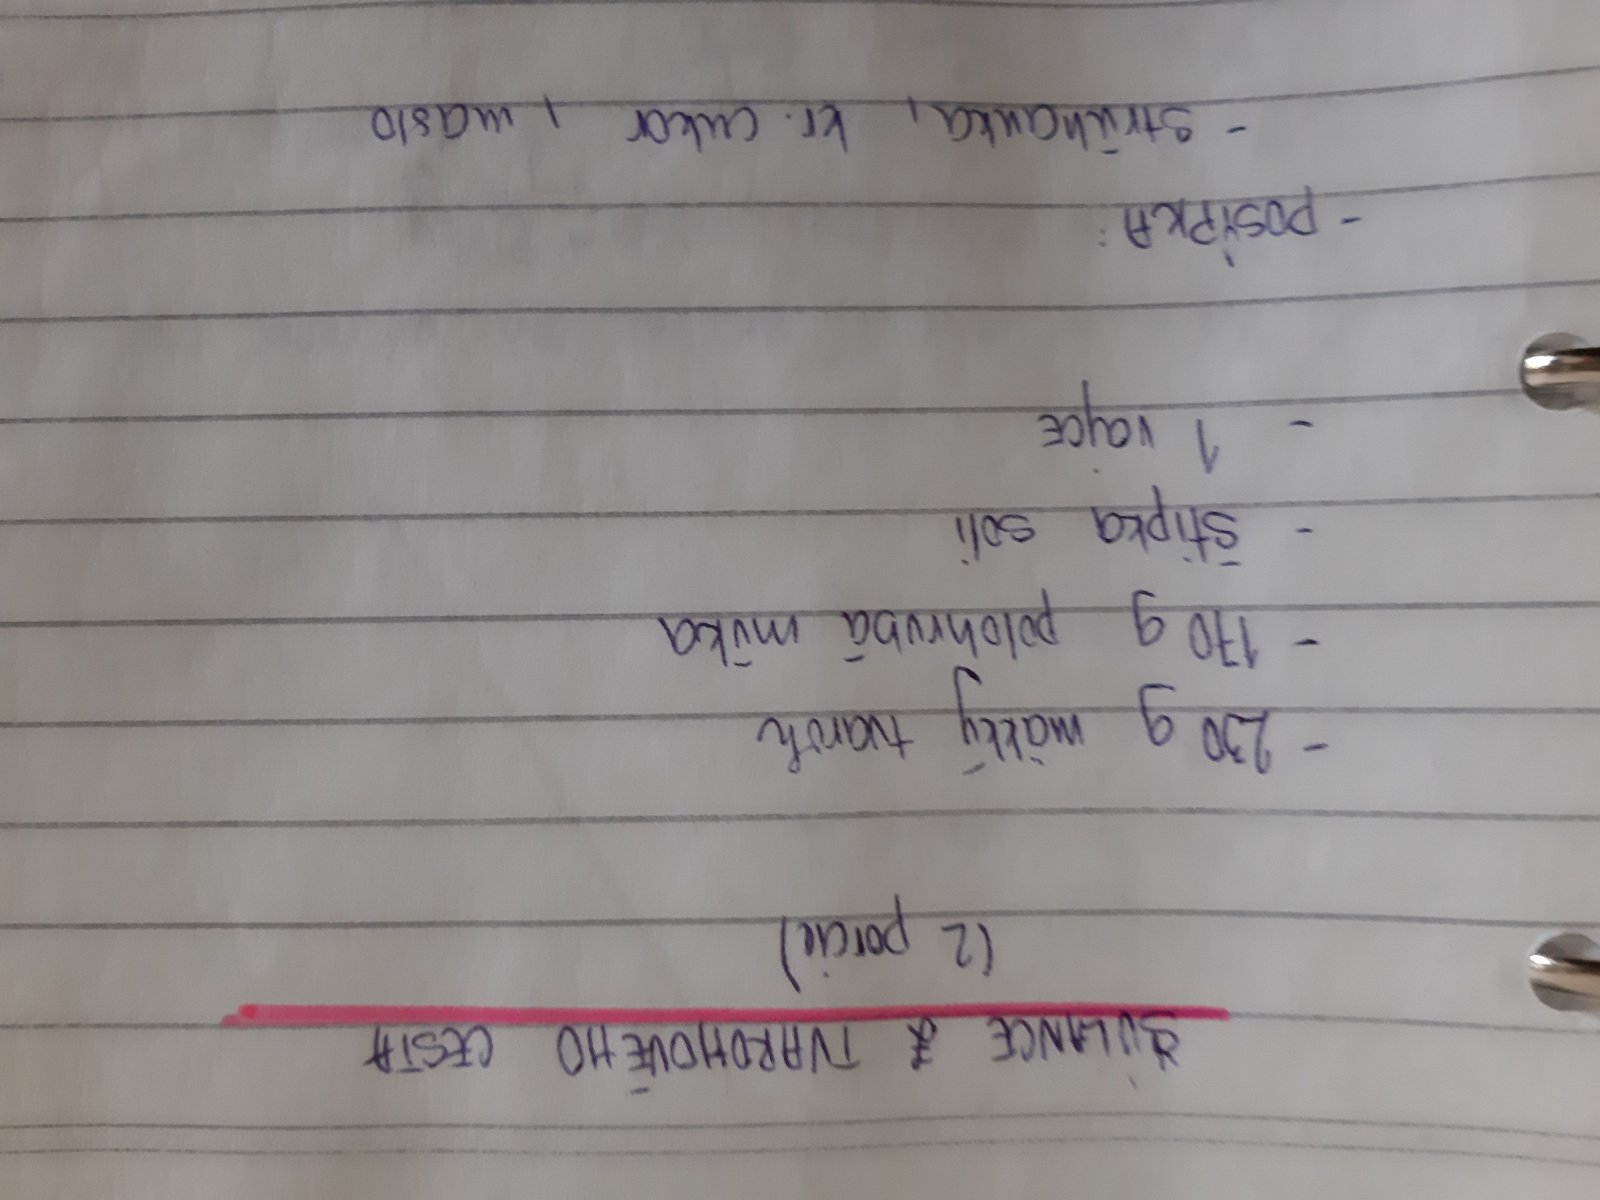 ŠÚĽANCE Z TVAROHOVÉHO CESTA
(2 porcie)
- 250 g mäkký tvaroh
- 170 g polohrubá múka
- štipka soli
- 1 vajce
- POSÝPKA:
- strúhanka, kr. cukor, maslo